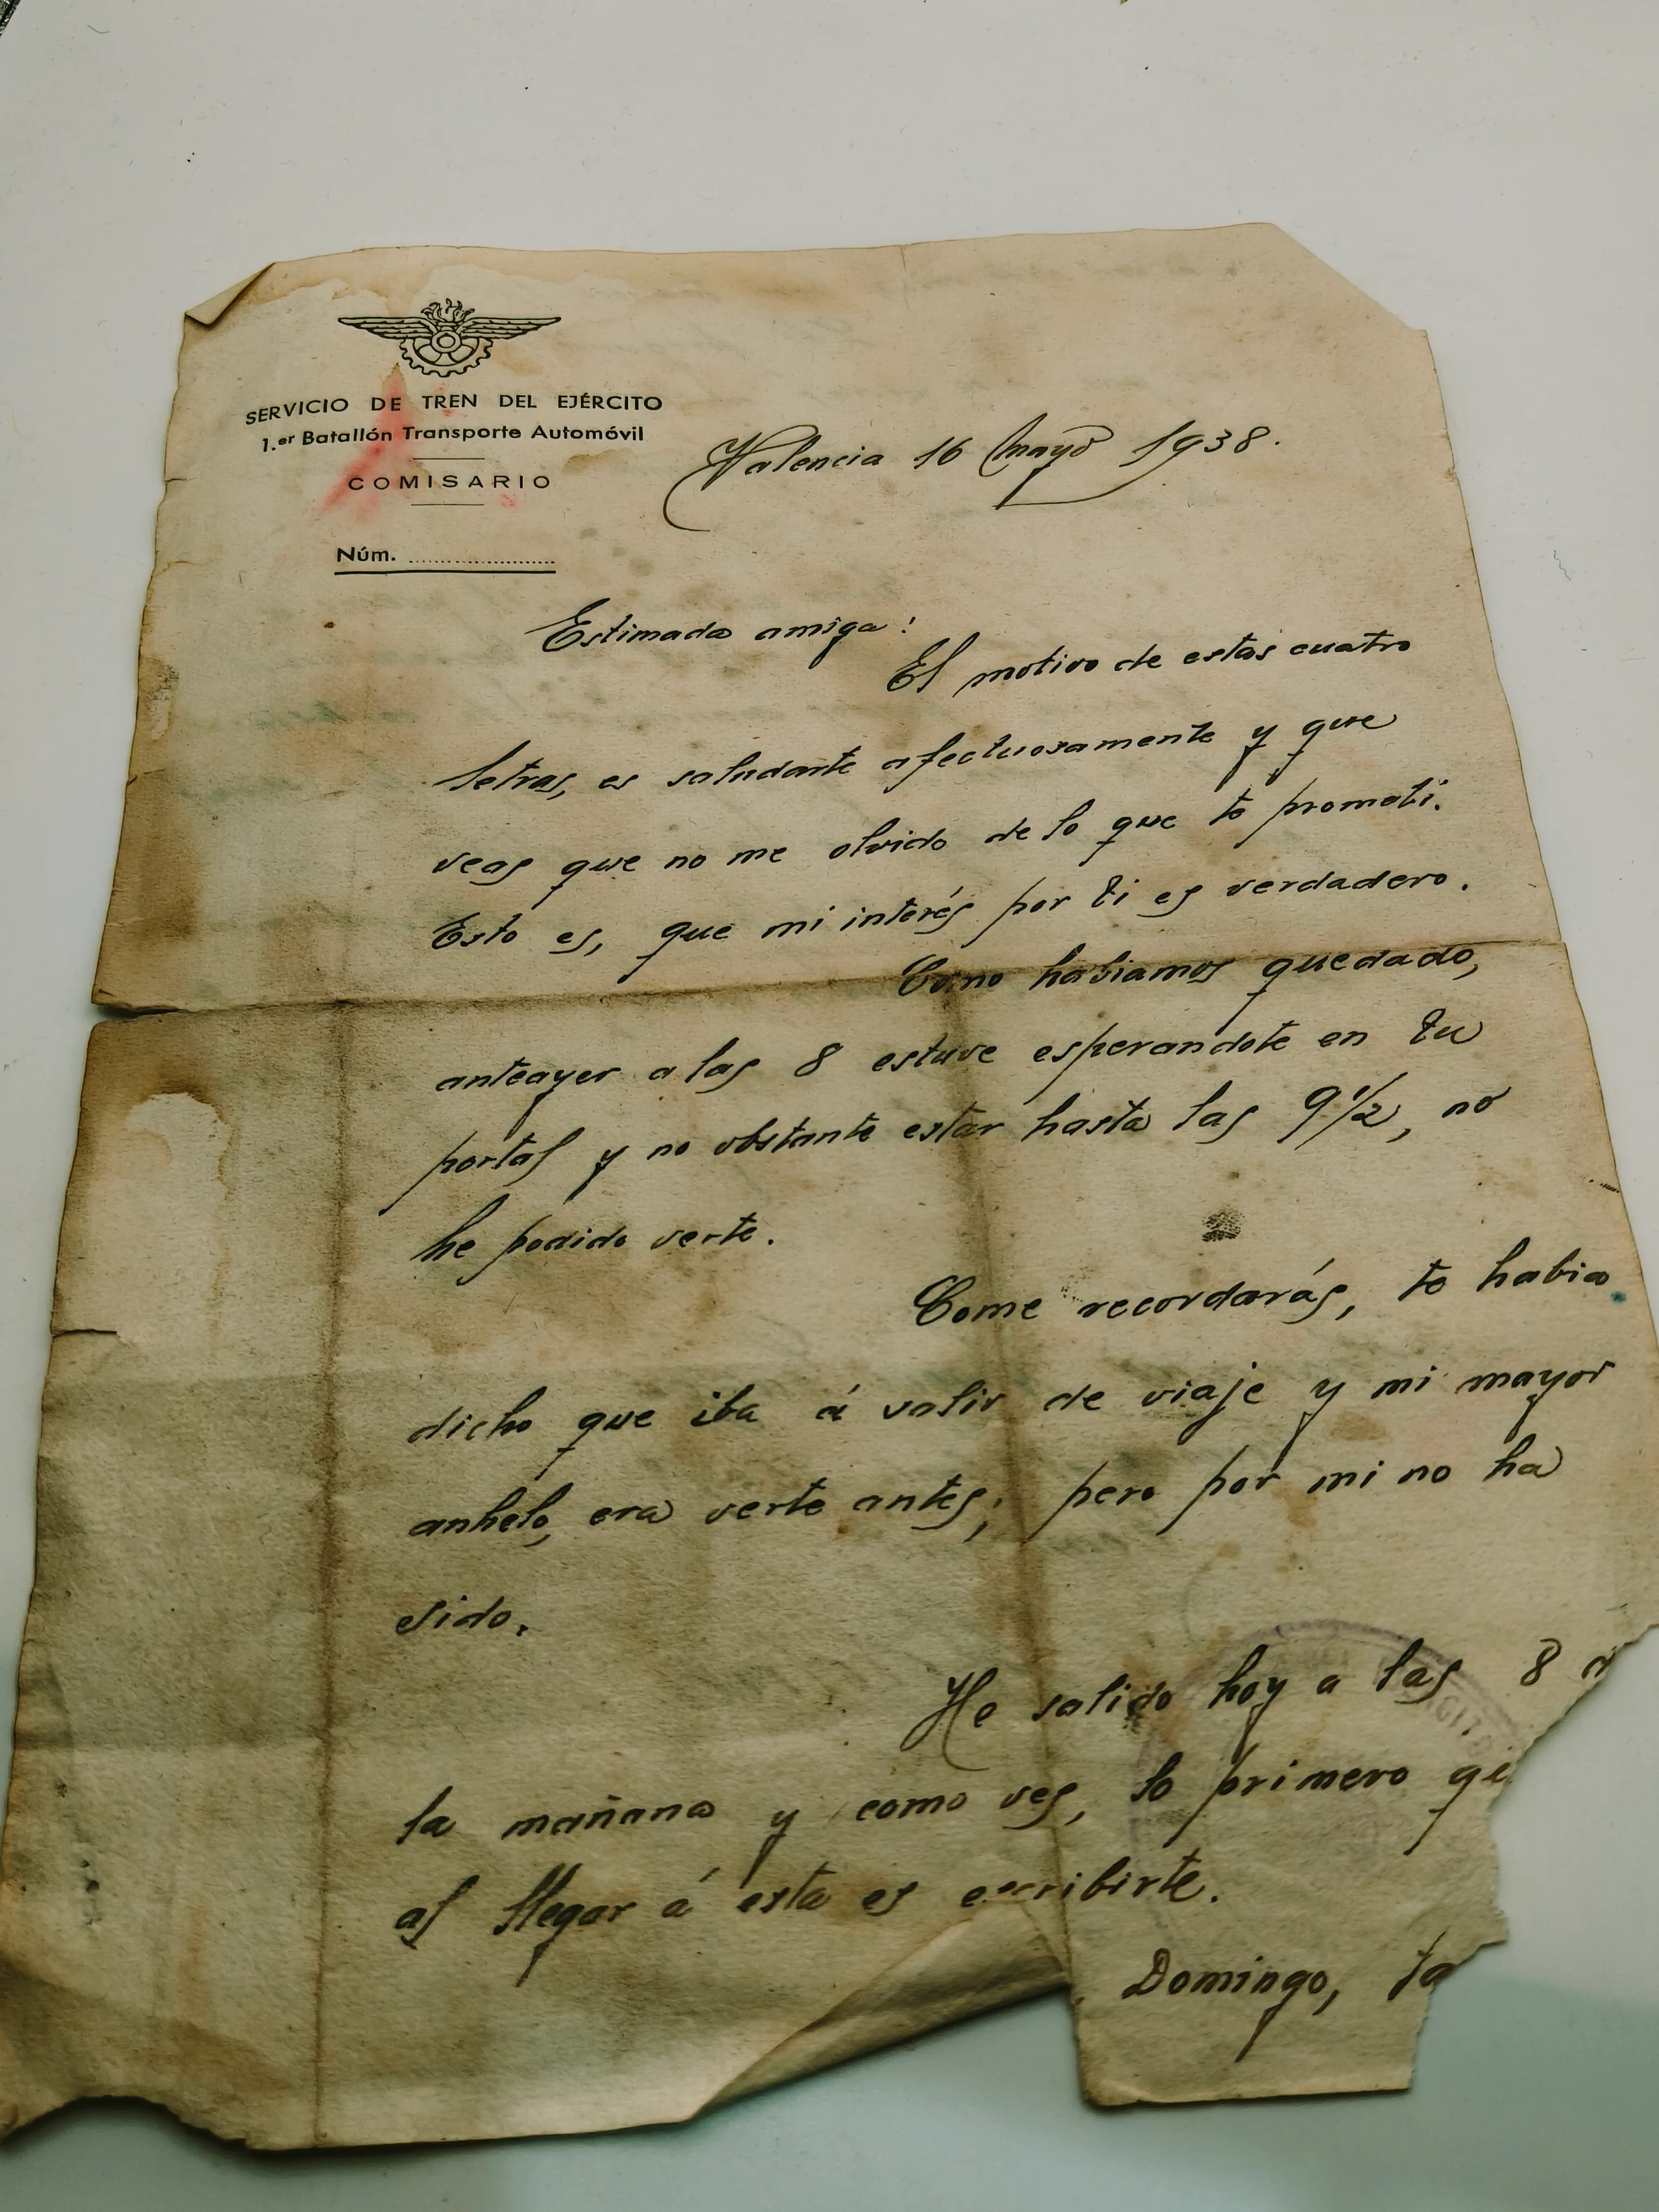 SERVICIO DE TREN DEL EJÉRCITO
1.er Batallón Transporte Automóvil
COMISARIO
Núm.
Valencia 16 Mayo 1938.
Estimada amiga:
El motivo de estas cuatro
letras, es saludarte afectuosamente y que
veas que no me olvido de lo que te prometi.
Esto es, que mi interés por ti es verdadero.
Como habiamos quedado,
anteayer a las 8 estuve esperandote en tu
portal y no obstante estar hasta las 9 1/2, no
he podido verte.
Come recordarás, te habia
dicho que iba á salir de viaje y mi mayor
anhelo, era verte antes; pero por mi no ha
sido.
He salido hoy a las 8 d
la mañana y como ves, lo primero
al llegar á esta es escribirte.
Domingo, ta